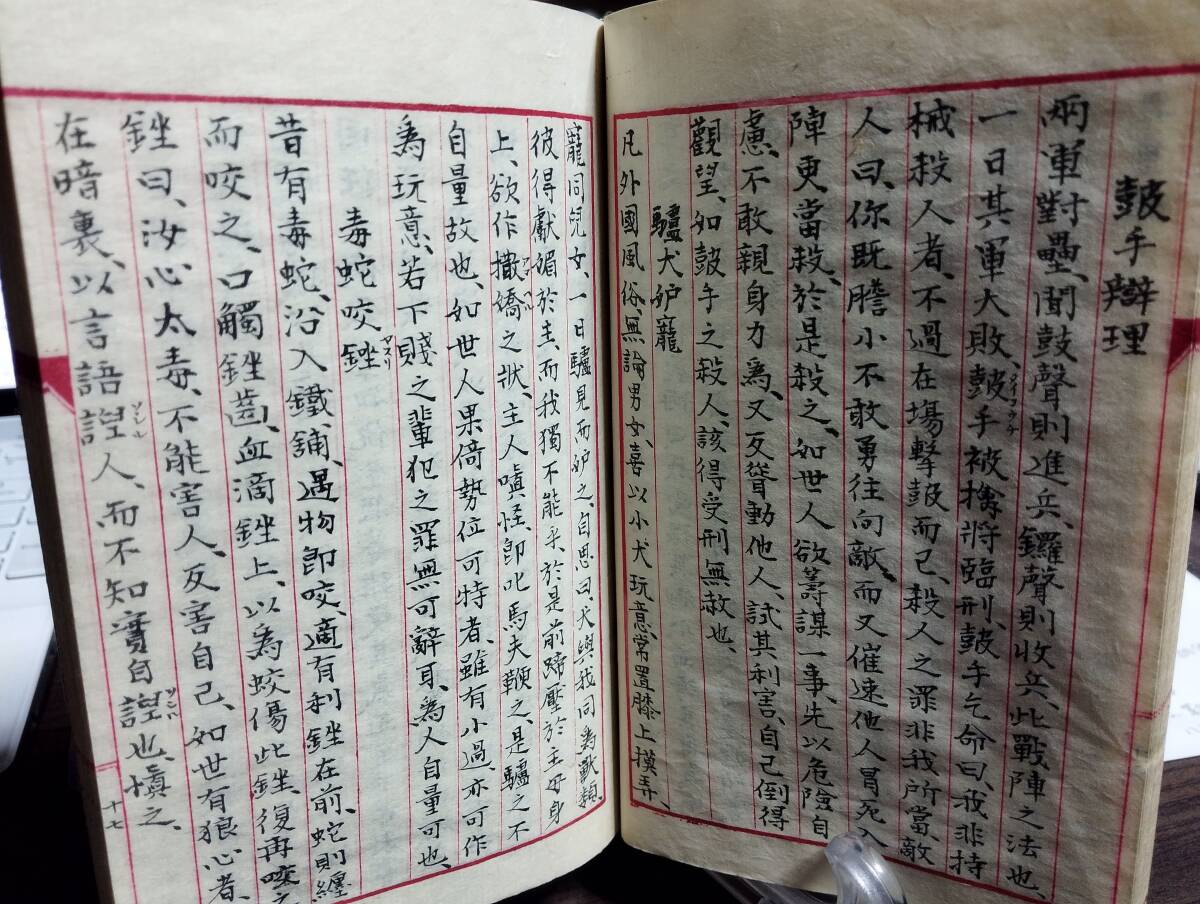 鼓手辯理
兩軍對壘、聞鼓聲則進兵、鑼聲則收兵、此戰陣之法也、
一日其軍大敗、鼓手被擒、將臨刑、鼓手乞命曰、我非持
械殺人者、不過在塲擊鼓而已、殺人之罪非我所當、敵
人曰、你既膽小不敢勇往向敵、而又催速他人冒死入
陣、更當殺、於是殺之、如世人欲籌謀一事、先以危險自
慮、不敢親身力為、又反聳動他人、試其利害、自己倒得
觀望、如鼓手之殺人、該得受刑無赦也、
驢犬妒寵
凡外國風俗、無論男女、喜以小犬玩意、常置膝上摸弄、
寵同兒女、一日驢見而妒之、自思曰、犬與我同為獸類、
彼得獻媚於主、而我獨不能乎、於是前蹄壓於主母身
上、欲作撒嬌之狀、主人嗔怪、即叱馬夫鞭之、是驢之不
自量故也、如世人果倚勢位可恃者、雖有小過、亦可作
為玩意、若下賤之輩犯之罪無可辭耳、為人自量可也、
毒蛇咬銼
昔有毒蛇、沿入鐵鋪、遇物即咬、適有利銼在前、蛇則纏
而咬之、口觸銼齒、血滴銼上、以為蛟傷此銼、復再咬之
銼曰、汝心太毒、不能害人、反害自己、如世有狼心者、
在暗裏、以言語諲人、而不知實自諲也、慎之、
十七